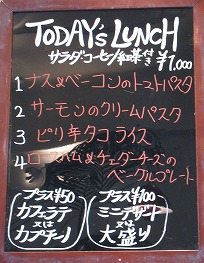 TODAY's LUNCH
サラダ・コーヒー/紅茶付き ¥1,000
1 ナス&ベーコンのトマトパスタ
2 サーモンのクリームパスタ
3 ピリ辛タコライス
4 ロースハム&チェダーチーズの
ベーグルプレート
プラス¥50
カフェラテ
又は
カプチーノ
プラス¥100
ミニデザート
又は
大盛り